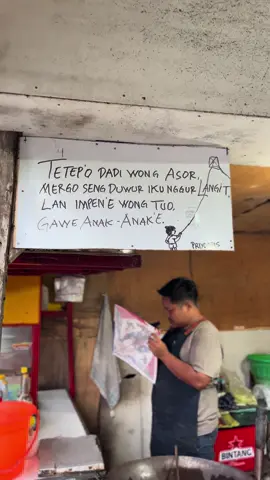 TETEP'O DADI WONG ASOR,
MERGO SENG DUWUR IKU NGGUR LANGIT.
LAN IMPEN'E WONG TUO.
GAWE ANAK-ANAK'E.
BINTANG